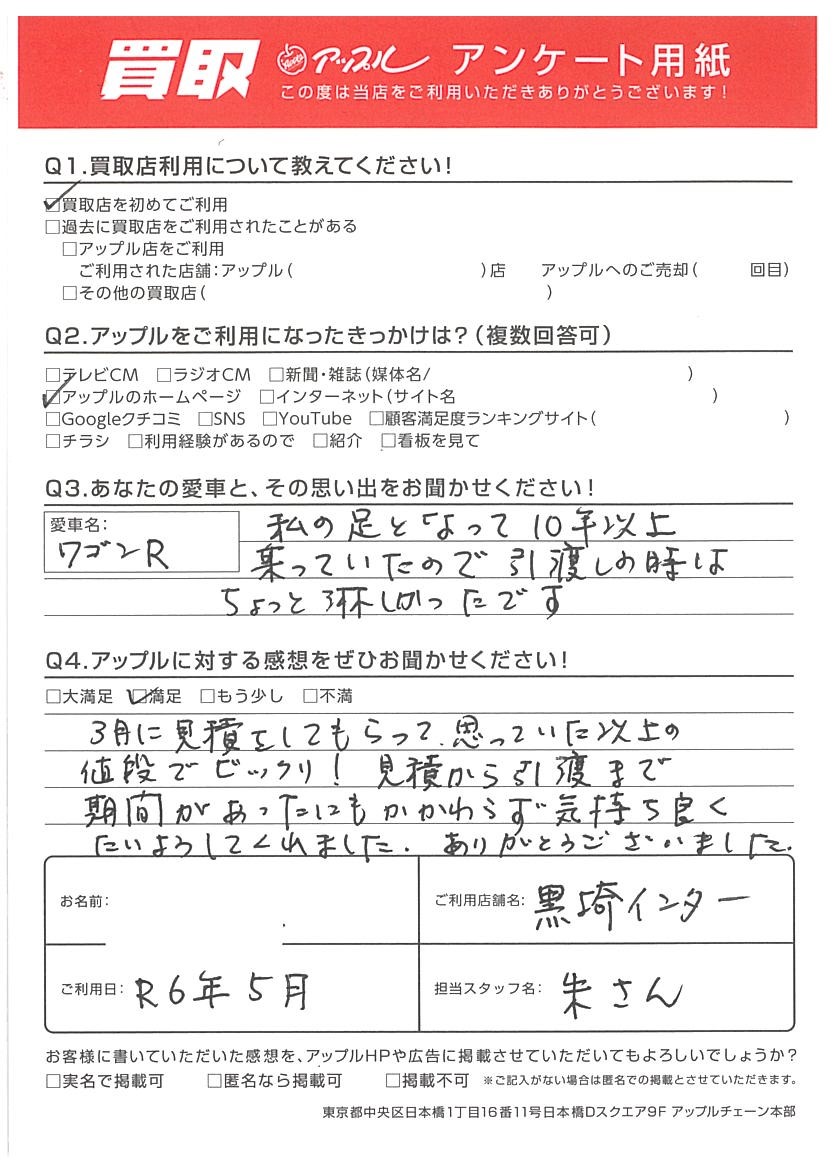 買取 アップル アンケート用紙
この度は当店をご利用いただきありがとうございます!
Q1.買取店利用について教えてください!
□買取店を初めてご利用
□過去に買取店をご利用されたことがある
□アップル店をご利用
ご利用された店舗:アップル( )店 アップルへのご売却( 回目)
□その他の買取店( )
Q2.アップルをご利用になったきっかけは?(複数回答可)
□テレビCM □ラジオCM □新聞・雑誌(媒体名/ )
□アップルのホームページ □インターネット(サイト名 )
□Googleクチコミ □SNS □YouTube □顧客満足度ランキングサイト( )
□チラシ □利用経験があるので □紹介 □看板を見て
Q3.あなたの愛車と、その思い出をお聞かせください!
愛車名:
ワゴンR
私の足となって10年以上
乗っていたので引渡しの時は
ちょっと淋しかったです
Q4.アップルに対する感想をぜひお聞かせください!
□大満足 □満足 □もう少し □不満
3月に見積をしてもらって、思っていた以上の
値段でビックリ! 見積から引渡まで
期間があったにもかかわらず気持ち良く
たいよう してくれました. ありがとうございました.
お名前:
ご利用店舗名: 黒埼インター
ご利用日: R6年5月
担当スタッフ名: 朱さん
お客様に書いていただいた感想を、アップルHPや広告に掲載させていただいてもよろしいでしょうか?
□実名で掲載可 □匿名なら掲載可 □掲載不可 ※ご記入がない場合は匿名での掲載とさせていただきます。
東京都中央区日本橋1丁目16番11号日本橋Dスクエア9F アップルチェーン本部